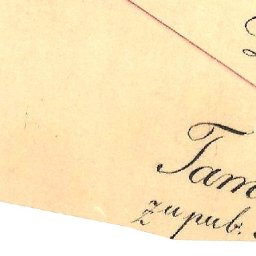 Tam
zu pub.